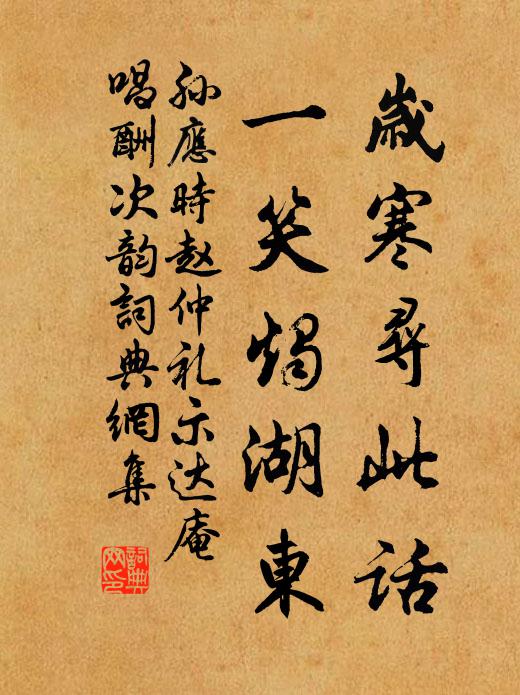 歲寒尋此话
一笑燭湖東
孙應時赵仲礼示达庵
唱酬次韵詞典網集
詞典網印